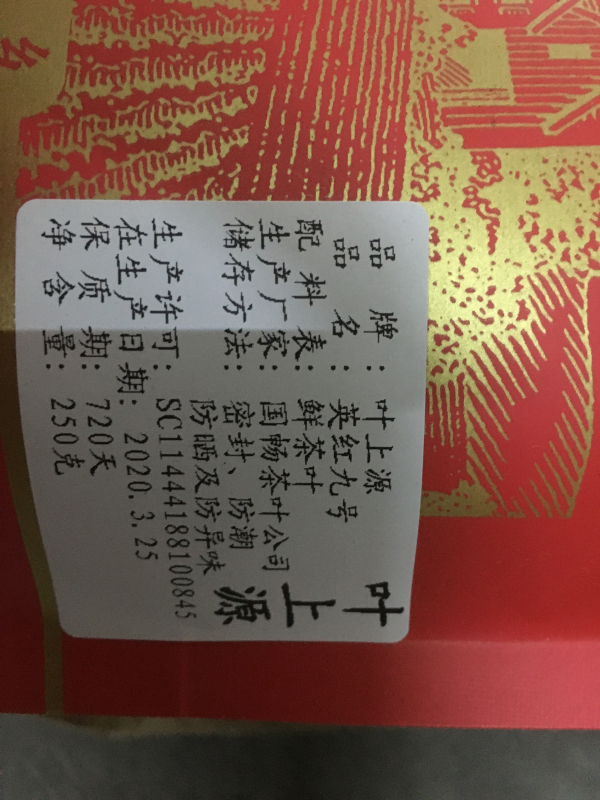 品牌：叶上源
品名：英红九号
配料表：鲜茶叶
生产厂家：国畅茶叶公司
储存方法：密封、防潮
防晒及防异味
生产许可：SC11444188100845
在生产日期：2020.3.25
保质期：720天
净含量：250克
叶上源
乡